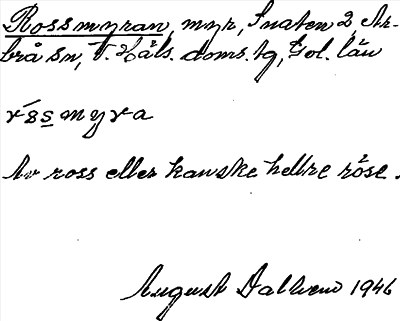 Rossmyran, myr, Snaten 2, Ar-
brå sn, V. Häls. doms.tg, Gol. län
rössmyra
Av ross eller kanske hellre röse.
August 1946